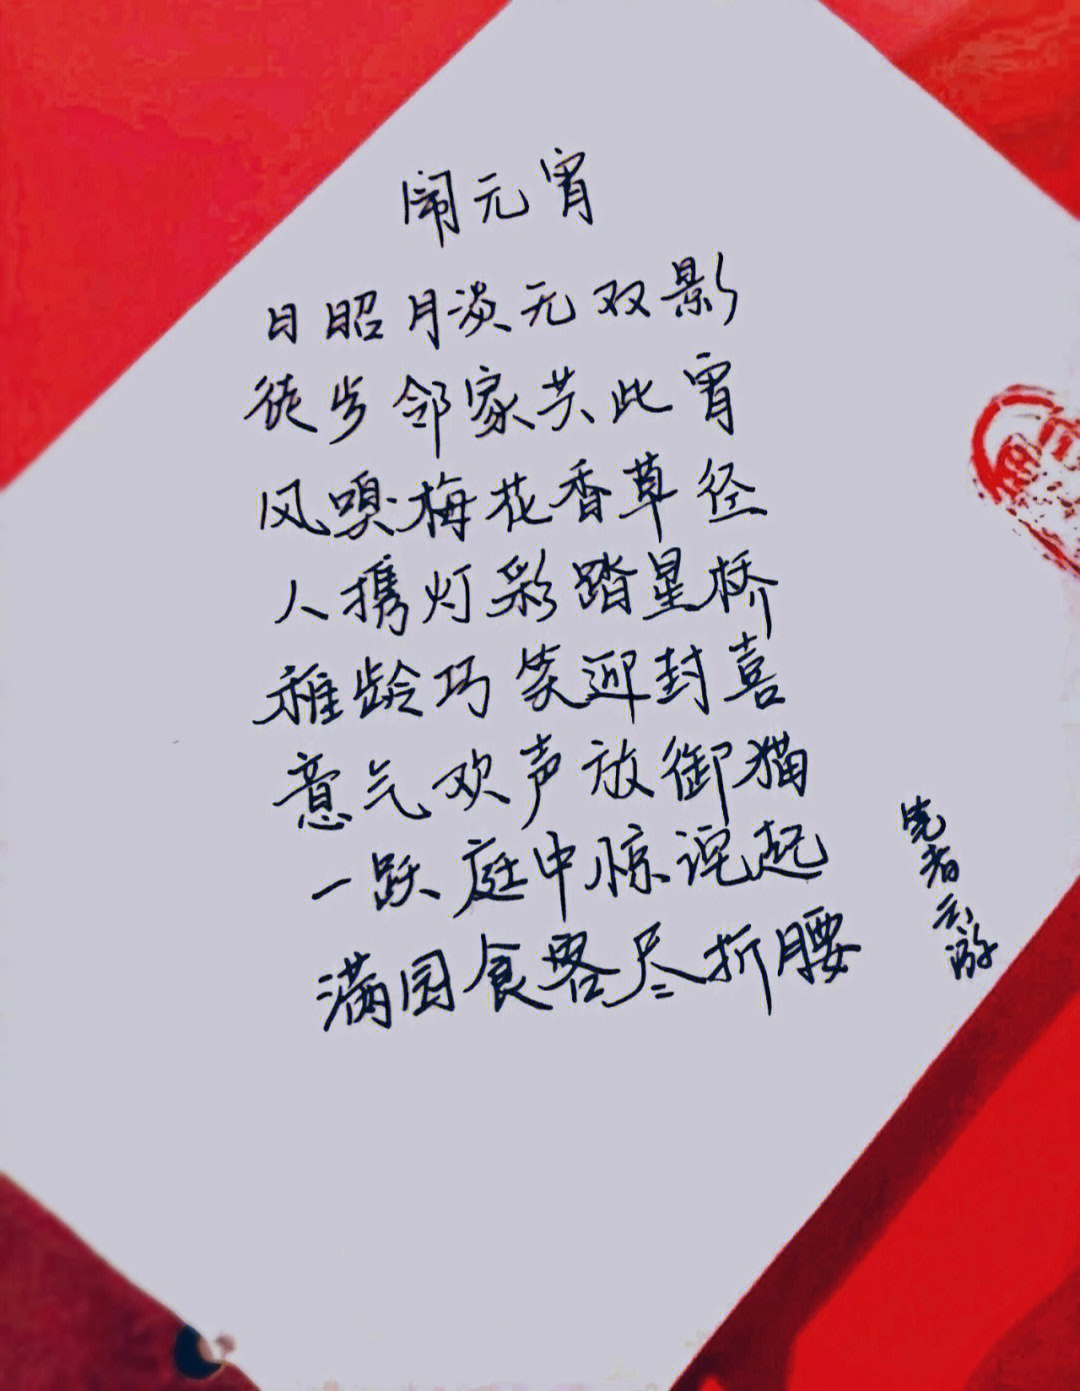 闹元宵
日昭月淡无双影
徒步邻家共此宵
风嗅梅花香草径
人携灯彩踏星桥
稚龄巧笑迎封喜
意气欢声放御猫
一跃庭中惊诧起
满园食客尽折腰
笔者云游